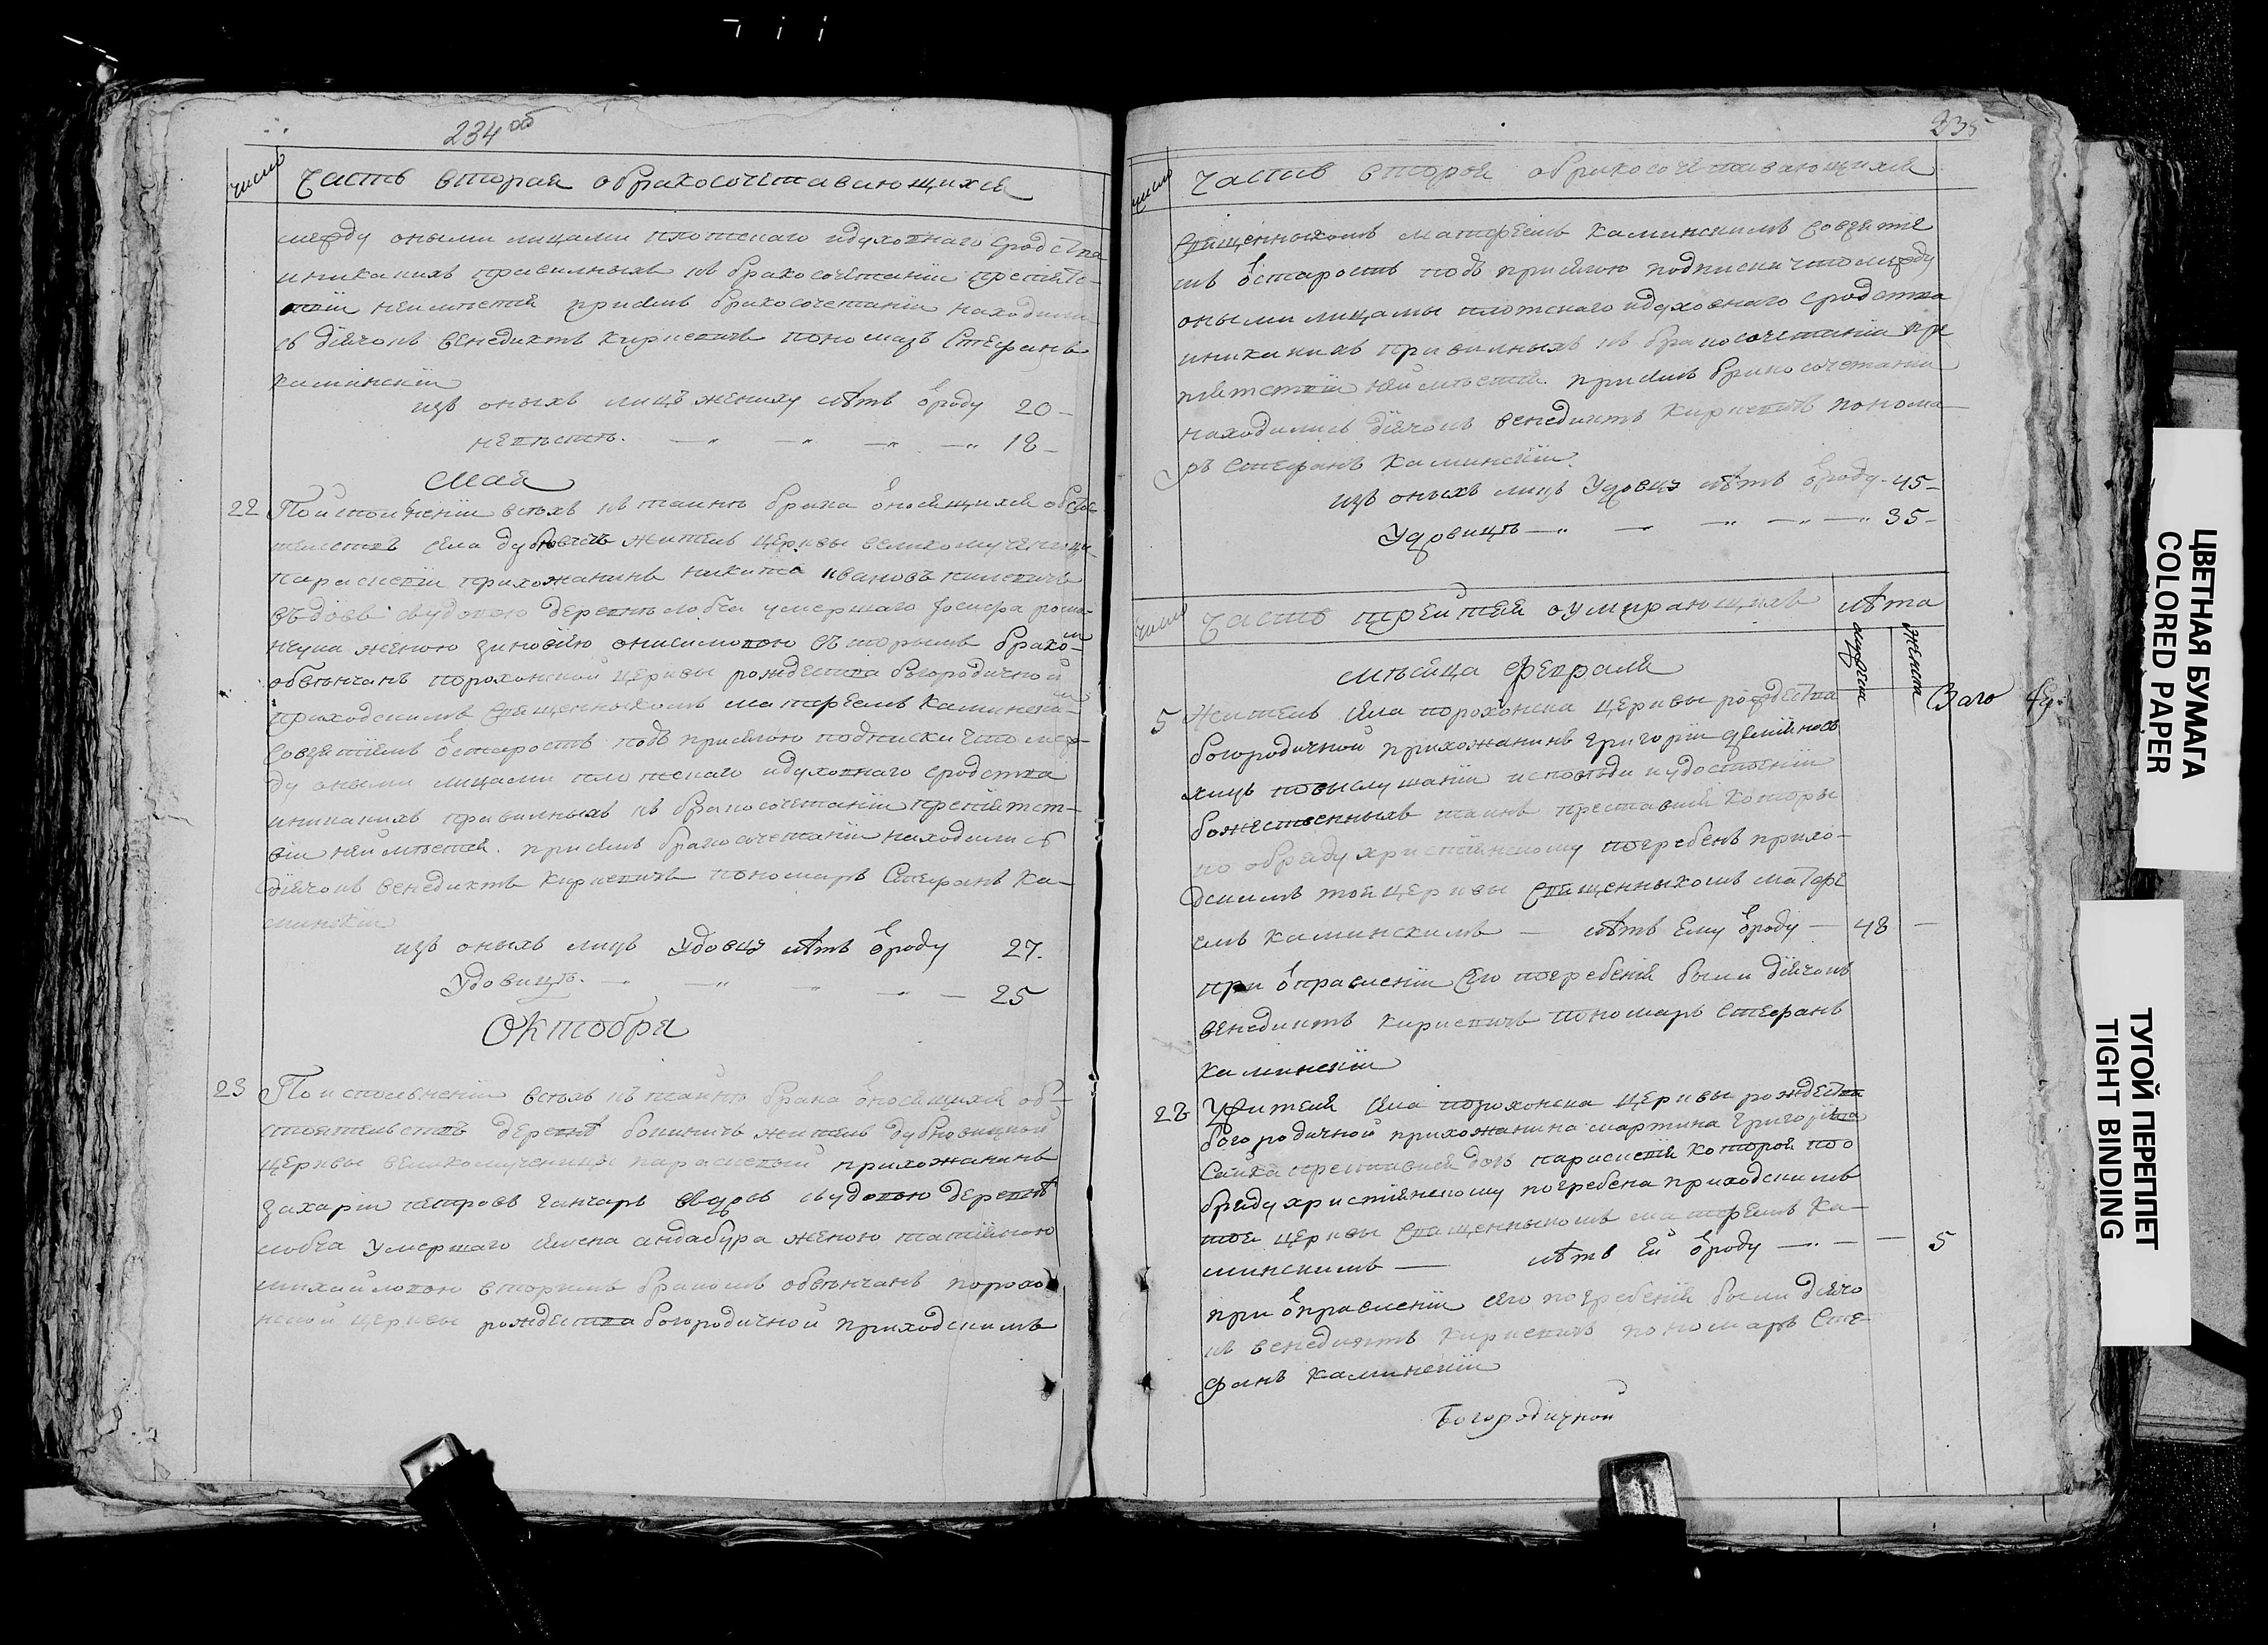 234 об
число
Часть вторая обракосочетавающихся
между оными лицами плотскаго идуховнаго сродства
иникакихъ правилныхъ къ бракосочетанїи препятс-
твїи неимѣется присемъ бракосочетанїи находили
сь дїячокъ Венедиктъ Кирневичъ пономаръ Стефанъ
Каминскїи
изъ оныхъ лицъ жениху лѣтъ вроду 20 –
невѣстѣ. 18 –
Мая
22 Поисполненїи всѣхъ къ таинѣ брака вносящихся обсто
ятелствъ села житель церкви великомученици
Параскевїи прихожанинъ Никита Ивановъ
въдовъ сьудовою деревнѣ умершаго Иосифа
женою Зиновїю Онисимовою въторымъ бракомъ
обвѣнчанъ порохонской церкви рождества богородичной
приходскимъ священникомъ Матфеемъ Каминским
совзятїемъ встаростѣ подъ присягою подписки что меж-
ду оными лицами плотскаго идуховнаго сродства
иникакихъ правилныхъ къ бракосочетанїи препятст-
вїи неимѣется. присемъ бракосочетанїи находилисъ
дїячокъ Венедиктъ Кирневичъ пономаръ Стефанъ Ка-
минскїи
изъ оныхъ лицъ Удовцу лѣтъ вроду 27.
Удовицѣ. 25
Октобря
23 Поисполнѣнїи всѣхъ къ таинѣ брака вносящихся об-
стоятельствъ деревнѣ житель дубновицкой
церкви великомученици параскевїи прихожанинъ
Захарїи Петровъ Ганчаръ вдовъ сьудовою деревнѣ
умершаго Андабура женою Татїяною
Михаиловою вторимъ бракомъ обвѣнчанъ порохо
нской церкви рождества богородичной приходскимъ
235
число
Часть вторая обракосочетавающихся
священникомъ Матфеемъ Каминскимъ совзятїе
мъ встаростѣ подъ присягою подписки чтомежду
оными лицамы плотскаго идуховнаго сродства
иникакихъ правилныхъ къ бракосочетанїи пре
пятствїи неимѣется. присемъ бракосочетанїи
находилисъ дїячокъ Венедиктъ Кирневичъ понома
ръ Стефанъ Каминскїи.
изъ оныхъ лицъ Удовцу лѣтъ вроду – 45 –
Удовицѣ 35 –
число
Часть третїяя оумирающихъ
лѣта
мужеска
женска
мѣсяца февраля
5 Житель села порохонска церкви рождества
богородичной прихожанинъ Григорїи
повыслушанїи исповѣди иудостоенїи
божественныхъ таинъ преставися которы
по обряду христїянскому погребенъ прихо-
дскимъ той церкви священныкомъ Матфе
емъ Каминскимъ – лѣтъ Ему вроду – 48 –
при вправленїи Его погребенїя были дїячокъ
Венедиктъ Кирневичъ пономаръ Стефанъ
Каминскїи
22 Ужителя села порохонска церкви рождества
богородичной прихожанина Мартина Григорїева
Сайка преставися дочь Параскевїя которая поо
бряду христїянскому погребена приходскимъ
той церкви священныкомъ Матфеемъ Ка-
минскимъ – лѣтъ Ей вроду – 5
при вправленїи его погребенїя были дїячо
къ Венедиктъ Кирневичъ пономаръ Сте-
фанъ Каминскїи
Богородичной
ЦВЕТНАЯ БУМАГА
COLORED PAPER
ТУГОЙ ПЕРЕПЛЕТ
TIGHT BINDING